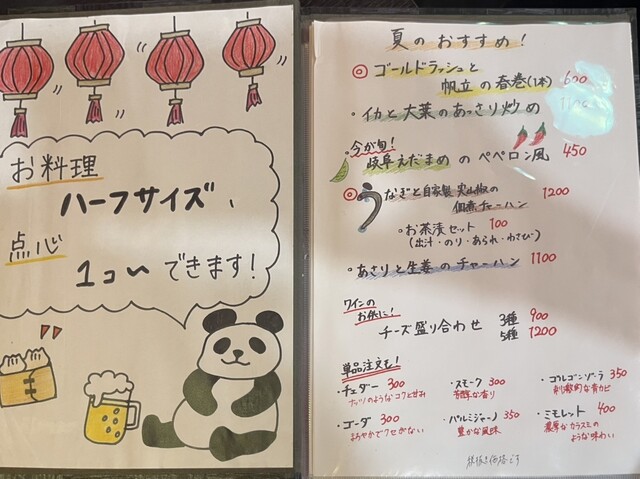 お料理
ハーフサイズ、
点心
1コ〜できます!
夏のおすすめ!
◎ゴールドラッシュと
帆立の春巻(1本) 600
・イカと大葉のあっさり炒め
今が旬!
岐阜えだまめのペペロン風 450
◎うなぎと自家製実山椒の
佃煮チャーハン 1200
・お茶漬セット 100
(出汁・のり・あられ・わさび)
・あさりと生姜のチャーハン 1100
ワインの
お供に!
チーズ盛り合わせ 3種 900
5種 1200
単品注文も!
・チェダー 300
ナッツのようなコクと甘み
・スモーク 300
芳醇な香り
・ゴルゴンゾーラ 350
刺激的な青カビ
・ゴーダ 300
まろやかでクセがない
・パルミジャーノ 350
豊かな風味
・ミモレット 400
濃厚なカラスミの
ような味わい